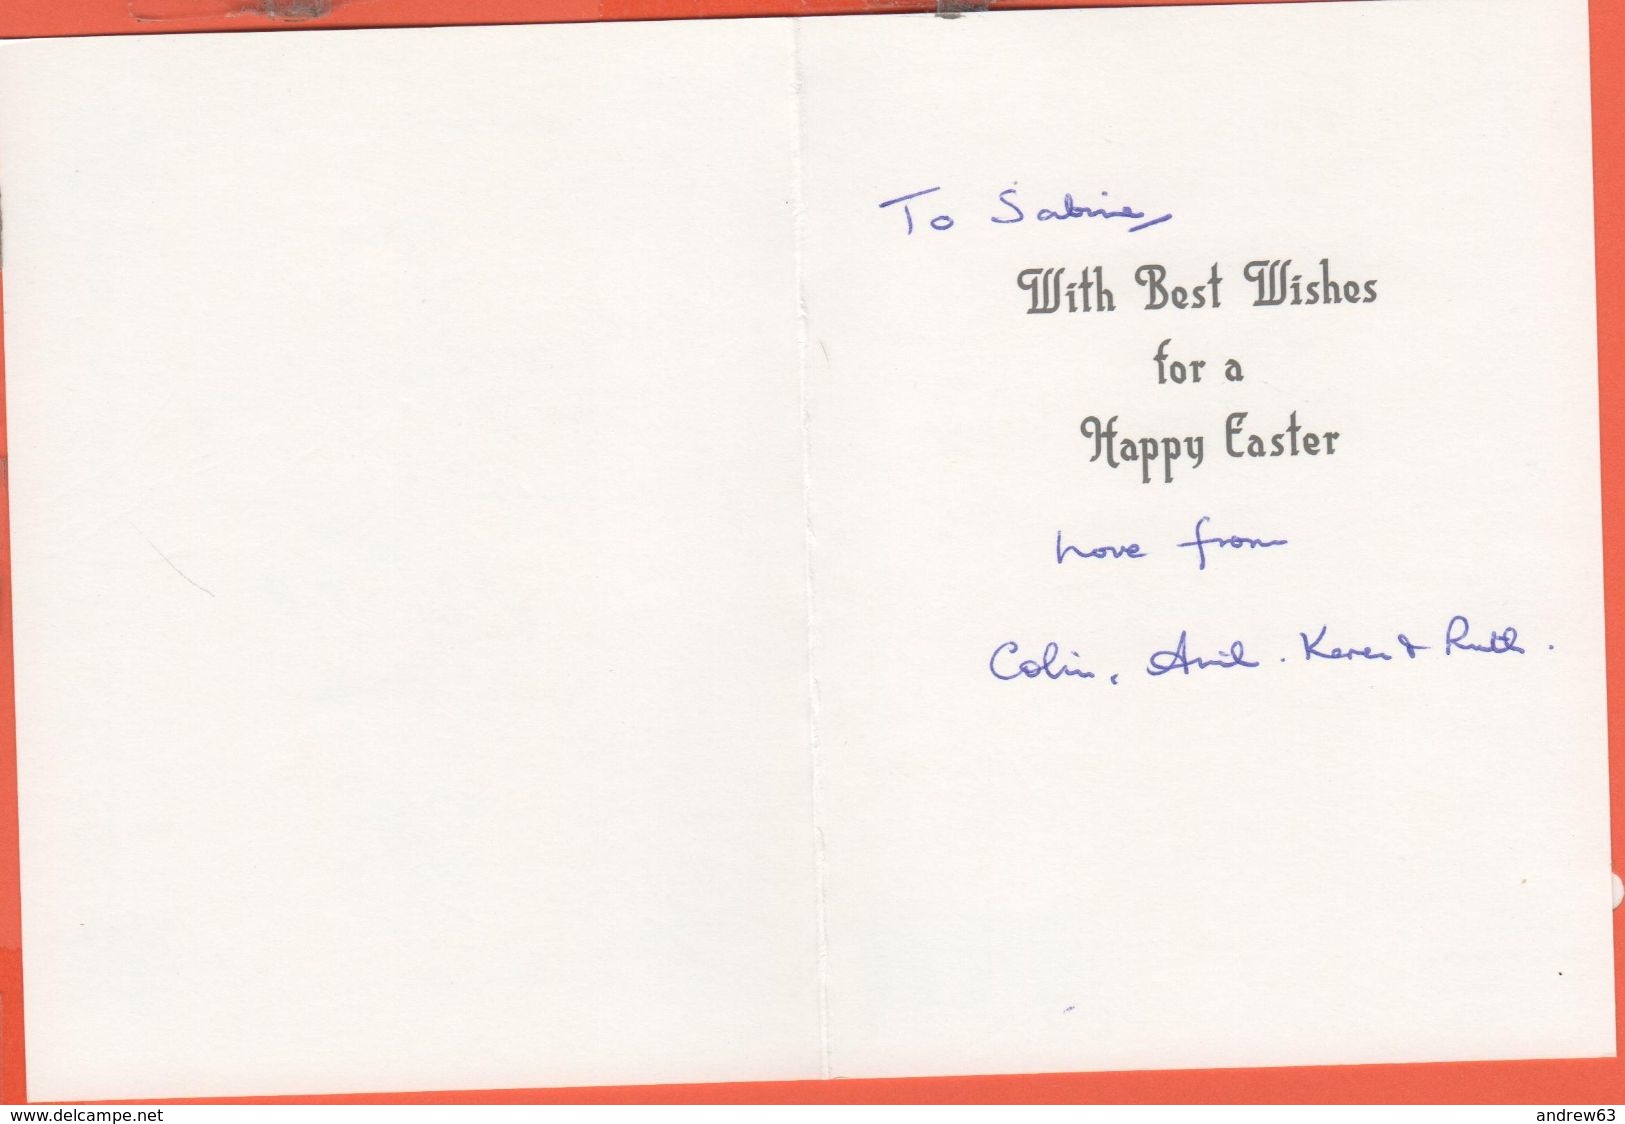 To Sabine,
With Best Wishes
for a
Happy Easter
Love from
Colin, Avril. Karen & Ruth.
www.delcampe.net
andrew63